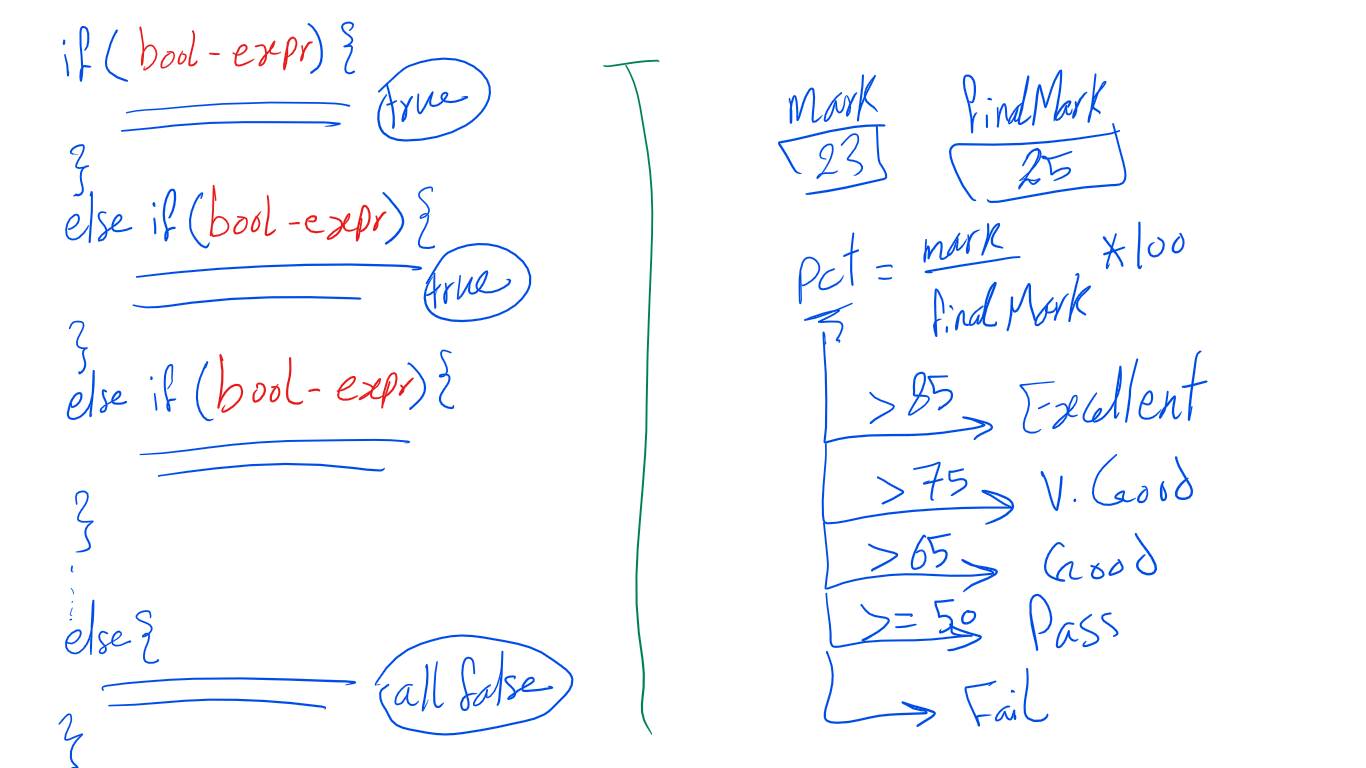 if (bool-expr) {
true
}
else if (bool-expr) {
true
}
else if (bool-expr) {
}
else {
all false
}
mark finalMark
23 25
pct = mark / finalMark * 100
> 85 Excellent
> 75 V. Good
> 65 Good
>= 50 Pass
Fail